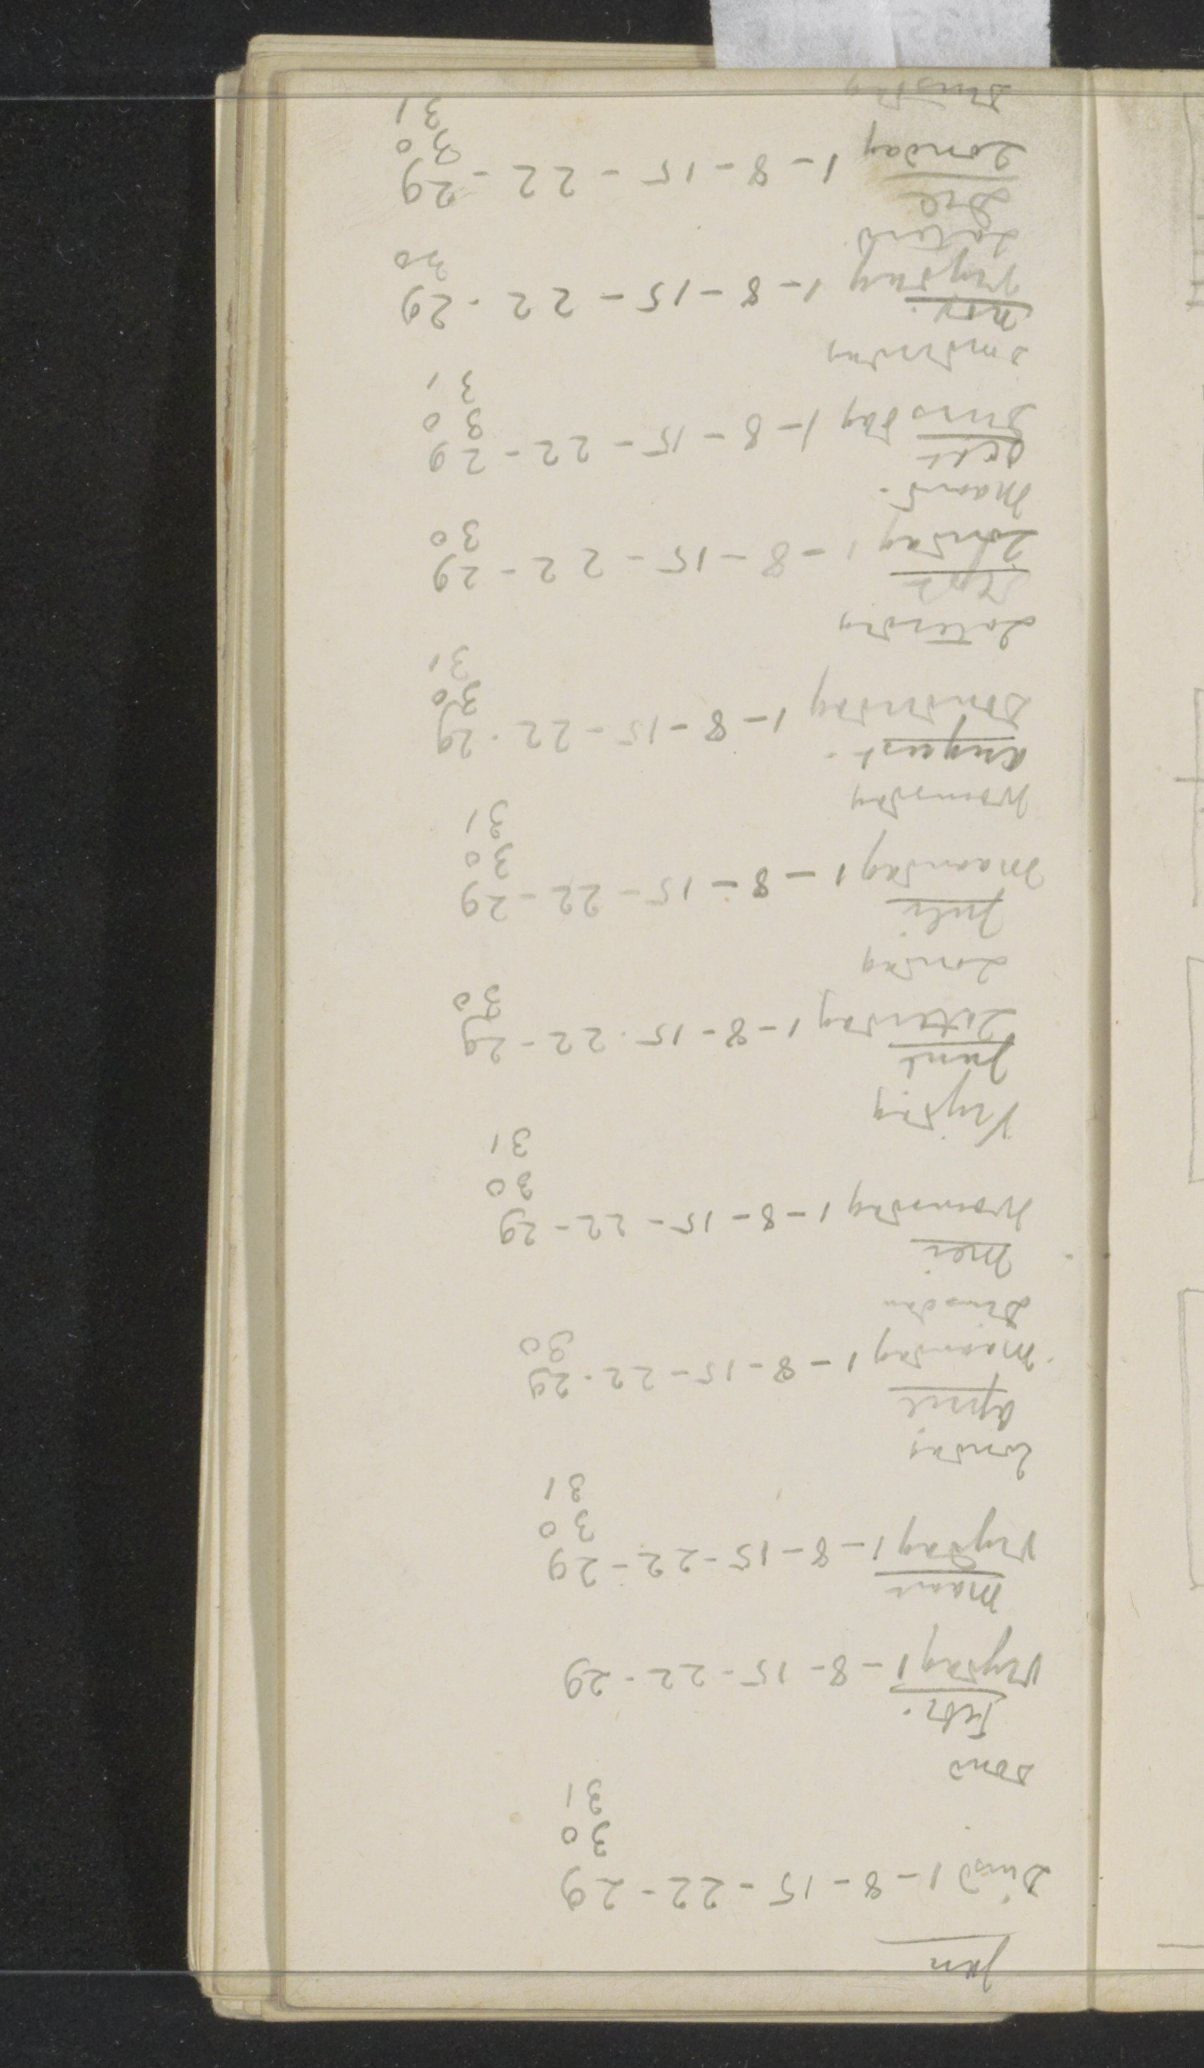 jan
Dinsd 1 - 8 - 15 - 22 - 29
30
31
dond
Febr.
Vrydag 1 - 8 - 15 - 22 - 29
maart
Vrydag 1 - 8 - 15 - 22 - 29
30
31
Zondag
april
maandag 1 - 8 - 15 - 22 - 29
30
Dinsdag
mei
woensdag 1 - 8 - 15 - 22 - 29
30
31
Vrydag
juni
Zaterdag 1 - 8 - 15 - 22 - 29
30
Zondag
juli
maandag 1 - 8 - 15 - 22 - 29
30
31
woensdag
august.
donderdag 1 - 8 - 15 - 22 - 29
30
31
Zaterdag
sept
Zondag 1 - 8 - 15 - 22 - 29
30
maand.
oct
dinsdag 1 - 8 - 15 - 22 - 29
30
31
donderdag
nov.
vrydag 1 - 8 - 15 - 22 - 29
30
Zaterd
Dec
Zondag 1 - 8 - 15 - 22 - 29
30
31
dinsdag